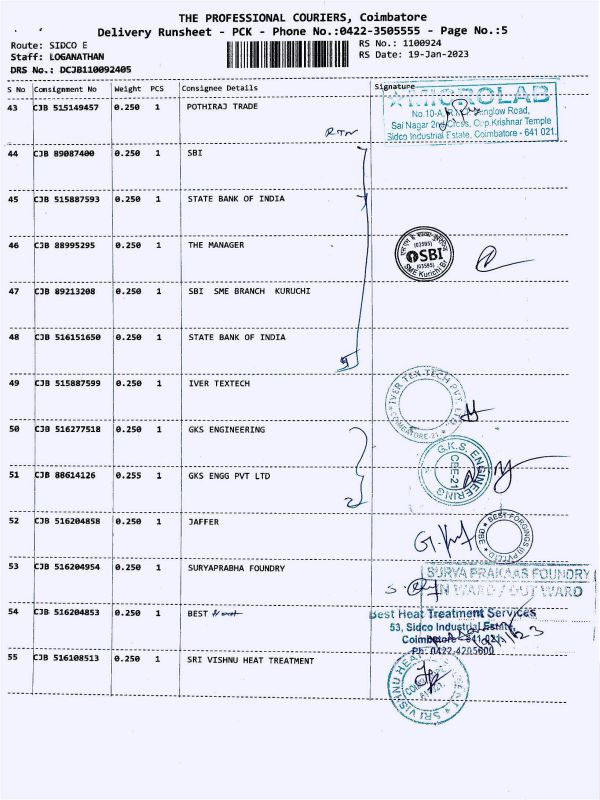 THE PROFESSIONAL COURIERS, Coimbatore
Delivery Runsheet - PCK - Phone No.:0422-3505555 - Page No.:5
Route: SIDCO E
RS No.: 1100924
Staff: LOGANATHAN
RS Date: 19-Jan-2023
DRS No.: DCJB110092405
S No Consignment No Weight PCS Consignee Details Signature
43 CJB 515149457 0.250 1 POTHIRAJ TRADE
MICROLAB
Sai Nagar 2nd Cross, Opp.Krishnar Temple
Sidco Industrial Estate, Coimbatore - 641 021.
RTN
44 CJB 89087400 0.250 1 SBI
45 CJB 515887593 0.250 1 STATE BANK OF INDIA
46 CJB 88995295 0.250 1 THE MANAGER
(03595)
SBI
(03595)
SME Kurichi Br
47 CJB 89213208 0.250 1 SBI SME BRANCH KURUCHI
48 CJB 516151650 0.250 1 STATE BANK OF INDIA
5
49 CJB 515887599 0.250 1 IVER TEXTECH
IVER TEX TECH PVT LTD
COIMBATORE-21
50 CJB 516277518 0.250 1 GKS ENGINEERING
51 CJB 88614126 0.255 1 GKS ENGG PVT LTD
G.K.S. ENGINEERING
CBE-21
2
52 CJB 516204858 0.250 1 JAFFER
BEST FORGINGS (I) PVT LTD
CBE
53 CJB 516204954 0.250 1 SURYAPRABHA FOUNDRY
SURYA PRAKAAS FOUNDRY
IN WARD / OUT WARD
54 CJB 516204853 0.250 1 BEST Heat
Best Heat Treatment Services
53, Sidco Industrial Estate,
Coimbatore - 641 021.
Ph: 0422-4205600
55 CJB 516108513 0.250 1 SRI VISHNU HEAT TREATMENT
SRI VISHNU HEAT TREATMENT